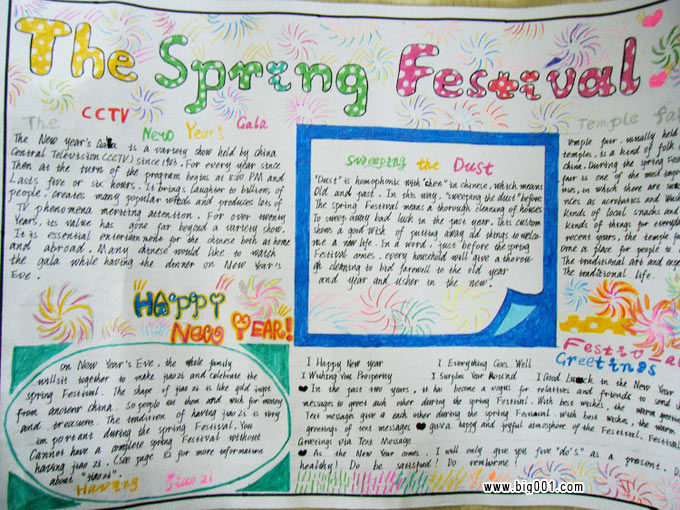 The Spring Festival
The CCTV New Year's Gala
The New year's Gala is a variety show held by China
Central Television (CCTV) since 1983. For every year since
Then at the turn of the program begins at 8:00 PM and
Lasts five or six hours. It brings laughter to billions of
people, creates many popular words and produces lots of
TV phenomena meriting attention. For over twenty
Years, its value has gone far beyond a variety show.
It is essential entertainment for the Chinese both at home
and abroad. Many Chinese would like to watch
the gala while having the dinner on New Year's
Eve.
Sweeping the Dust
"Dust" is homophonic with "chen" in chinese, which means
Old and past. In this way, "sweeping the dust" before
The spring Festival means a thorough cleaning of houses
To sweep away bad luck in the past year. This custom
shows a good wish of putting away old things to welcome
me a new life. In a word, just before the spring
Festival comes, every household will give a thorou
gh cleaning to bid farewell to the old year
and year and usher in the new.
Temple fai
Temple fair, usually held
temples, is a kind of folk
china. During the spring Fes
fair is one of the most impor
ies, in which there are
nces as acrobatics and
kinds of local snacks and
kinds of things for every
recent years, the temple fa
ome a place for people to
The traditional art and
The traditional life.
HAPPY
New YEAR!
On New Year's Eve, the whole family
will sit together to make jiaozi and celebrate the
spring Festival. The shape of jiao zi is like gold ingot
from ancient China. So people eat them and wish for money
and treasure. The tradition of having jiao zi is very
important during the spring Festival. You
Cannot have a complete spring Festival without
having jiao zi. (See page 21 for more information
about "jiaozi".
Having jiao zi
Festival
Greetings
I Happy New year I Everything Goes Well
I Wishing You Prosperity I Surplus Year Round I Good Luck in the New Year
In the past two years, it has become a vogue for relatives and friends to send
messages to greet each other during the spring Festival. With best wishes, the warm greetin
Text message give a each other during the spring Festival. With best wishes, the warm
greetings of text messages gave a happy and joyful atmosphere of the Festival. Festival
Greetings via Text Message
As the New Year comes, I will only give you five "do's" as a present. Do
healthy! Do be satisfied! Do
www.big001.com